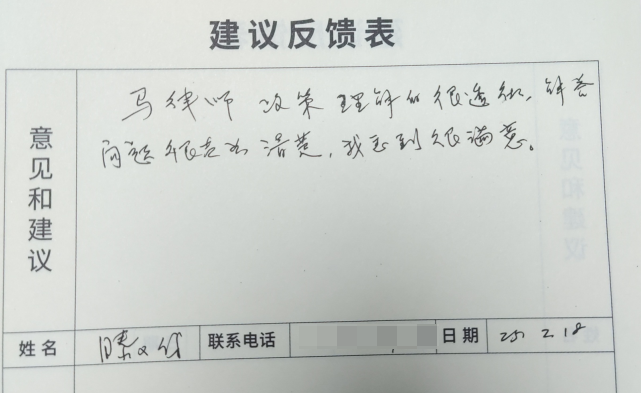 建议反馈表
意见和建议
马律师政策理解的很透彻，解答
问题很专业清楚，我感到很满意。
姓名
联系电话
日期 25.2.18